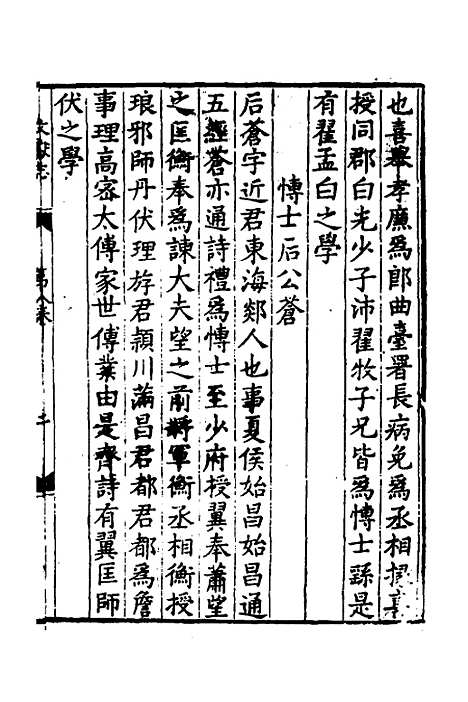 也喜舉孝廉爲郎曲臺署長病免爲丞相掾喜
授同郡白光少子沛翟牧子兄皆爲愽士繇是
有翟孟白之學
愽士后公蒼
后蒼字近君東海郯人也事夏侯始昌始昌通
五經蒼亦通詩禮爲愽士至少府授翼奉蕭望
之匡衡奉爲諫大夫望之前將軍衡丞相衡授
琅邪師丹伏理斿君頴川滿昌君都君都爲詹
事理高宻太傅家世傳業由是齊詩有翼匡師
伏之學
文獻志
第八卷